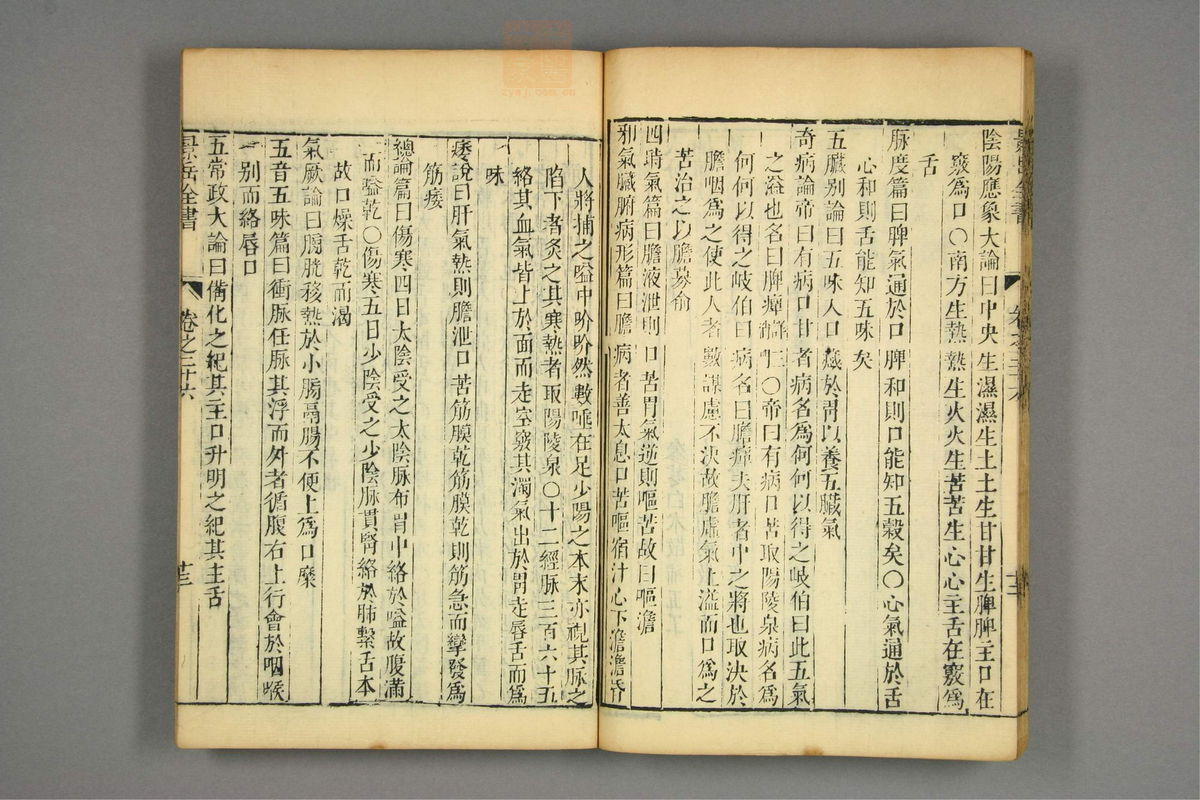 陰陽應象大論曰中央生濕濕生土土生甘甘生脾脾主口在
竅爲口○南方生熱熱生火火生苦苦生心心主舌在竅爲
舌
脉度篇曰脾氣通於口脾和則口能知五穀矣○心氣通於舌
心和則舌能知五味矣
五臟别論曰五味入口藏於胃以養五臟氣
奇病論帝曰有病口甘者病名爲何何以得之岐伯曰此五氣
之溢也名曰脾癉○帝曰有病口苦取陽陵泉病名爲
何何以得之岐伯曰病名曰膽癉夫肝者中之將也取決於
膽咽爲之使此人者數謀慮不決故膽虛氣上溢而口爲之
苦治之以膽募俞
四時氣篇曰膽液泄則口苦胃氣逆則嘔苦故曰嘔澹
邪氣臟腑病形篇曰膽病者善太息口苦嘔宿汁心下澹澹恐
人將捕之嗌中吤吤然數唾在足少陽之本末亦視其脉之
陷下者灸之其寒熱者取陽陵泉○十二經脉三百六十五
絡其血氣皆上於面而走空竅其濁氣出於胃走唇舌而爲
味
痿說曰肝氣熱則膽泄口苦筋膜乾筋膜乾則筋急而攣發爲
筋痿
總論篇曰傷寒四日太陰受之太陰脉布胃中絡於嗌故腹滿
而嗌乾○傷寒五日少陰受之少陰脉貫腎絡於肺繫舌本
故口燥舌乾而渴
氣厥論曰膀胱移熱於小腸鬲腸不便上爲口糜
五音五味篇曰衝脉任脉其浮而外者循腹右上行會於咽喉
别而絡唇口
五常政大論曰備化之紀其主口升明之紀其主舌
景岳全書
卷之二十六
廿三